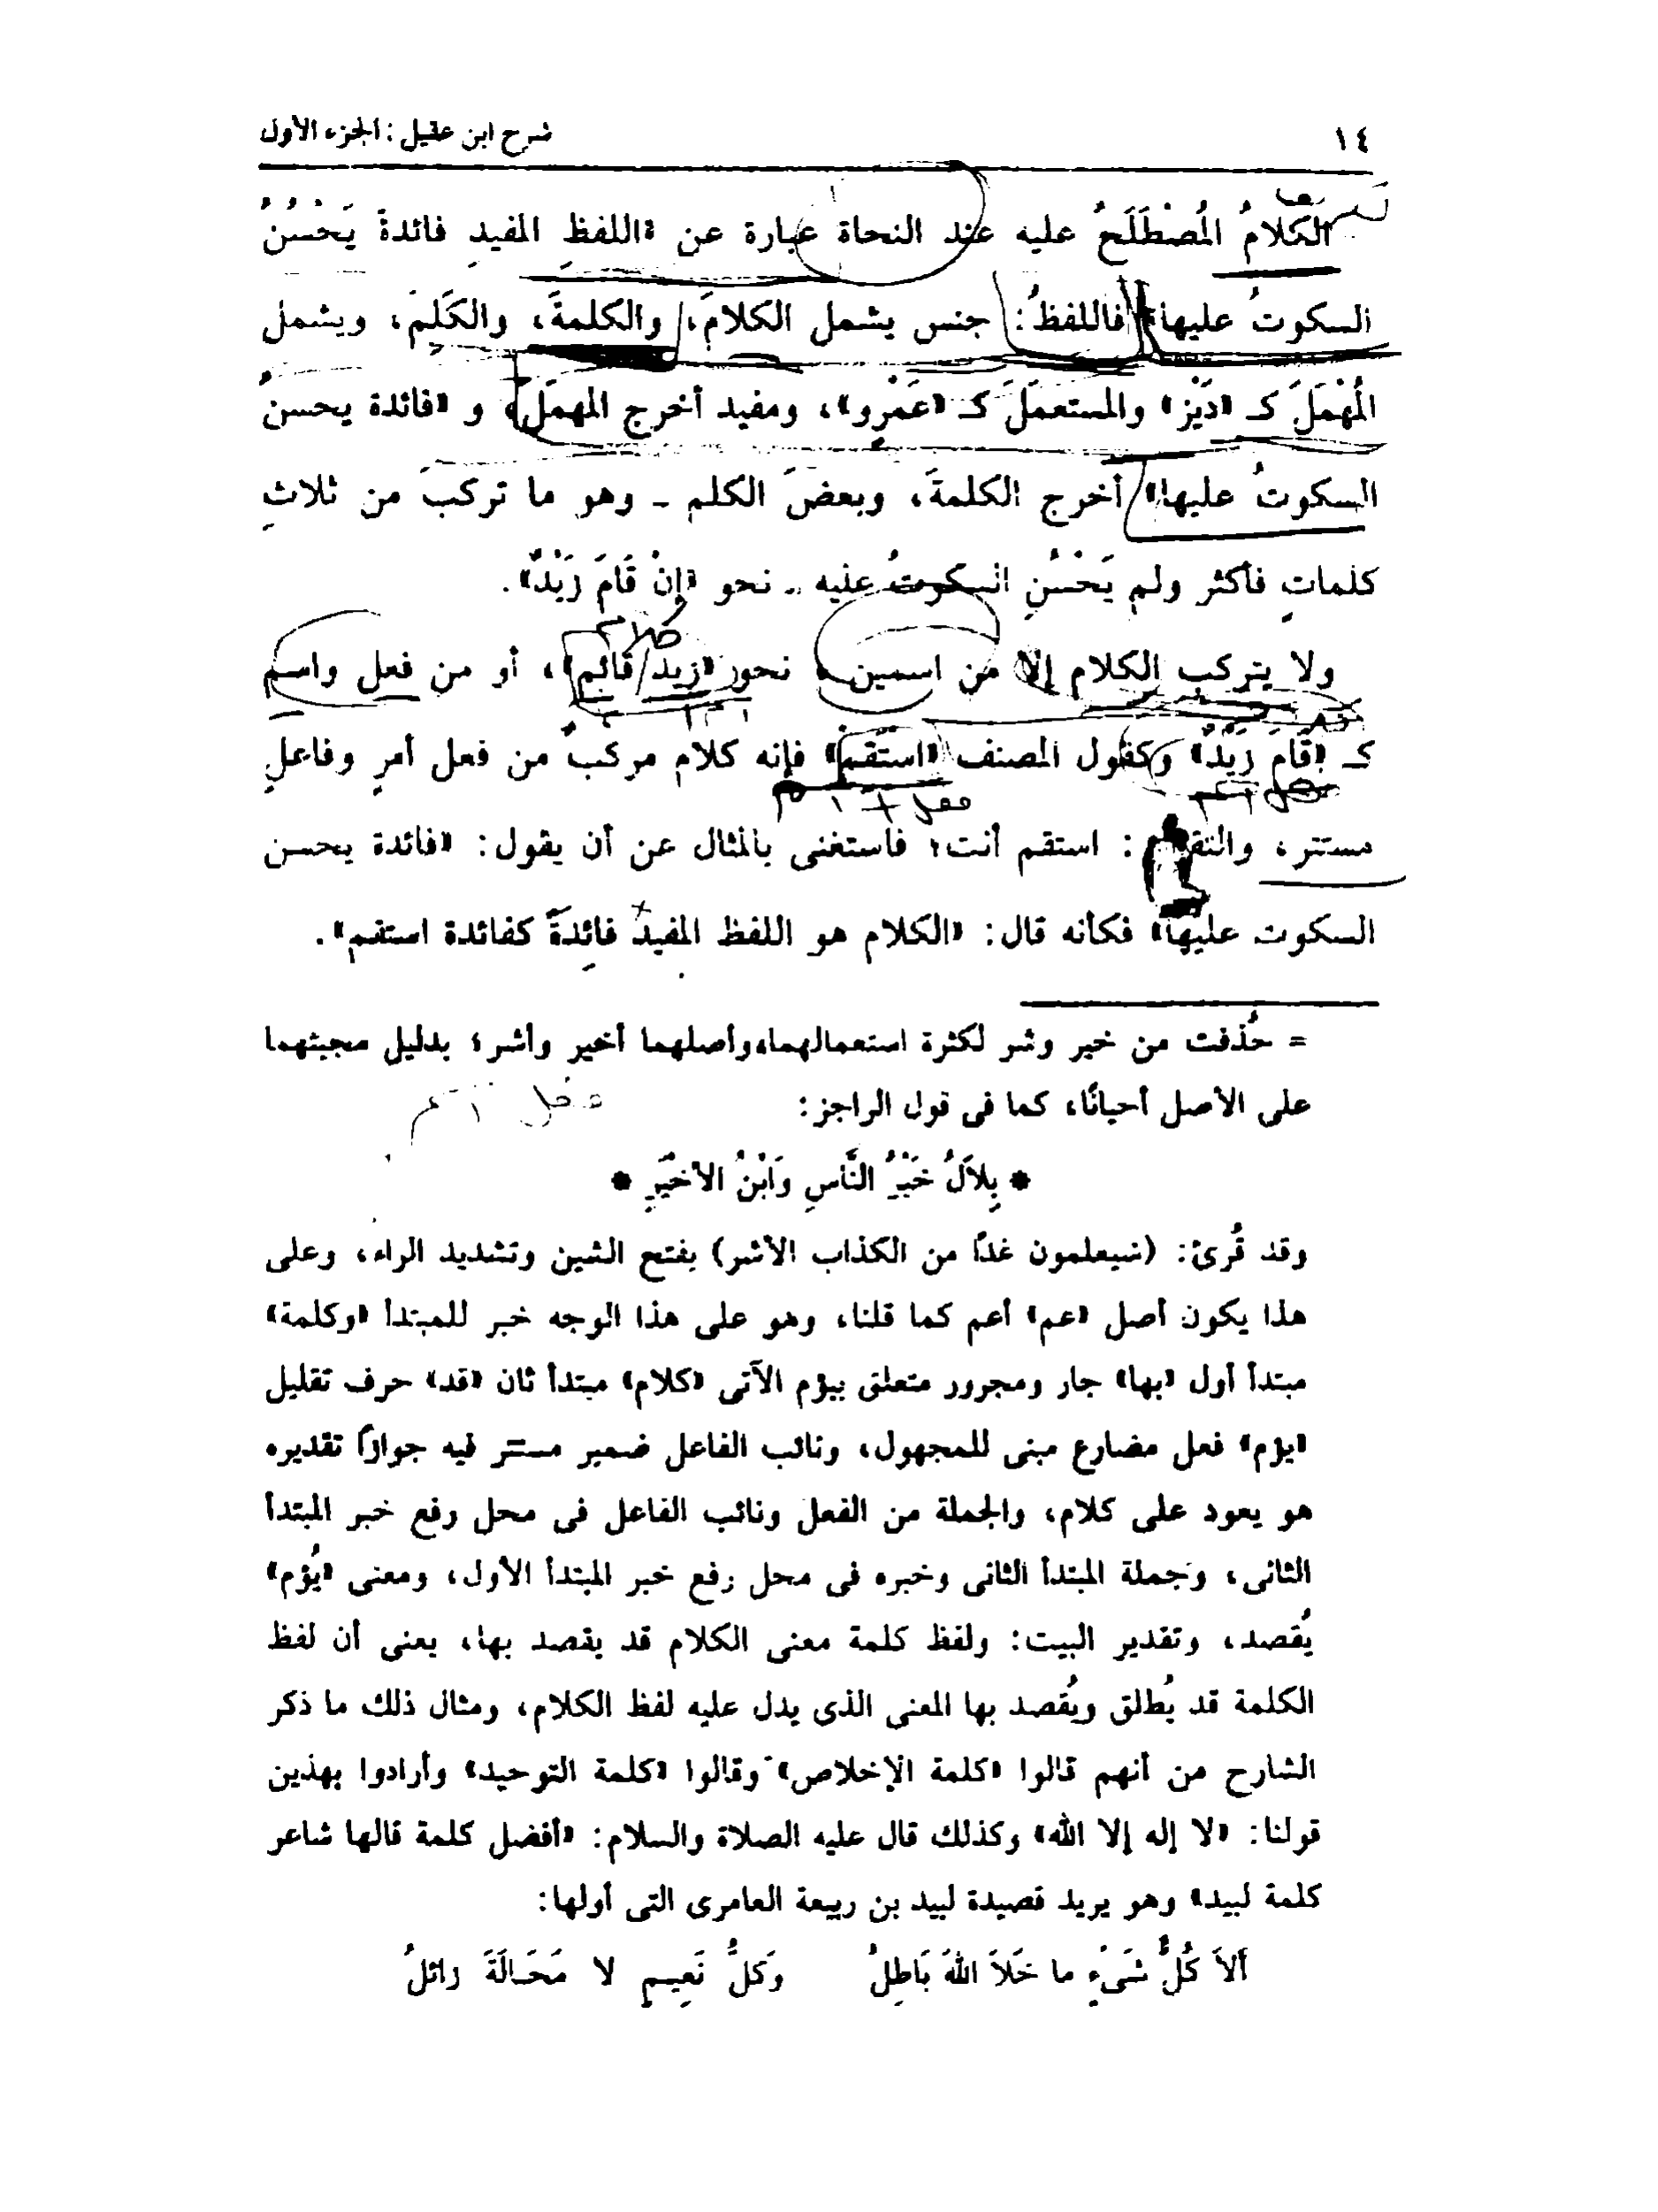 ١٤ شرح ابن عقيل : الجزء الأول
الكَلامُ المُصْطَلَحُ عليه عند النحاة عبارة عن «اللفظِ المفيدِ فائدةً يَحْسُنُ
السكوتُ عليها» فاللفظُ : جنس يشمل الكلامَ ، والكلمةَ ، والكَلِمَ ، ويشمل
المُهْمَلَ كـ «دَيْز» والمستعمَلَ كـ «عَمْرٍو» ، ومفيد أخرج المهمَلَ ، و «فائدة يحسنُ
السكوتُ عليها» أخرج الكلمةَ ، وبعضَ الكلم ـ وهو ما تركبَ من ثلاثِ
كلماتٍ فأكثر ولم يَحْسُنِ السكوتُ عليه ـ نحو «إنْ قَامَ زَيْدٌ» .
ولا يتركب الكلام إلا من اسمين ، نحو «زيد قائم» ، أو من فعل واسم
كلام
كـ «قَامَ زَيْدٌ» وكقول المصنف «استَقم» فإنه كلام مركبٌ من فعل أمرٍ وفاعلٍ
فعل اسم
مستتر ، والتقدير : استقم أنت ؛ فاستغنى بالمثال عن أن يقول : «فائدة يحسن
السكوت عليها» فكأنه قال : «الكلام هو اللفظ المفيدُ فائِدةً كفائدة استقم» .
= حُذفت من خير وشر لكثرة استعمالهما، وأصلهما أخير وأشر؛ بدليل مجيئهما
على الأصل أحيانًا، كما فى قول الراجز:
فعل اسم
* بِلاَلُ خَيْرُ النَّاسِ وَابْنُ الأخْيَرِ *
وقد قُرئ: (سيعلمون غدًا من الكذاب الأشر) بفتح الشين وتشديد الراء، وعلى
هذا يكون أصل «عم» أعم كما قلنا، وهو على هذا الوجه خبر للمبتدأ «وكلمة»
مبتدأ أول «بها» جار ومجرور متعلق بيؤم الآتى «كلام» مبتدأ ثان «قد» حرف تقليل
«يؤم» فعل مضارع مبنى للمجهول، ونائب الفاعل ضمير مستتر فيه جوازًا تقديره
هو يعود على كلام، والجملة من الفعل ونائب الفاعل فى محل رفع خبر المبتدأ
الثانى، وجملة المبتدأ الثانى وخبره فى محل رفع خبر المبتدأ الأول، ومعنى «يُؤم»
يُقصد، وتقدير البيت: ولفظ كلمة معنى الكلام قد يقصد بها، يعنى أن لفظ
الكلمة قد يُطلق ويُقصد بها المعنى الذى يدل عليه لفظ الكلام، ومثال ذلك ما ذكر
الشارح من أنهم قالوا «كلمة الإخلاص» وقالوا «كلمة التوحيد» وأرادوا بهذين
قولنا: «لا إله إلا الله» وكذلك قال عليه الصلاة والسلام: «أفضل كلمة قالها شاعر
كلمة لبيد» وهو يريد قصيدة لبيد بن ربيعة العامرى التى أولها:
ألاَ كُلُّ شَىْءٍ ما خَلاَ اللهَ بَاطِلُ وَكلُّ نَعِيمٍ لا مَحَالَةَ زائلُ